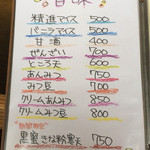 甘味
精進アイス 500
バニラアイス 500
甘酒 600
ぜんざい 700
ところ天 600
あんみつ 750
みつ豆 700
クリームあんみつ 850
クリームみつ豆 800
黒蜜きな粉寒天 750